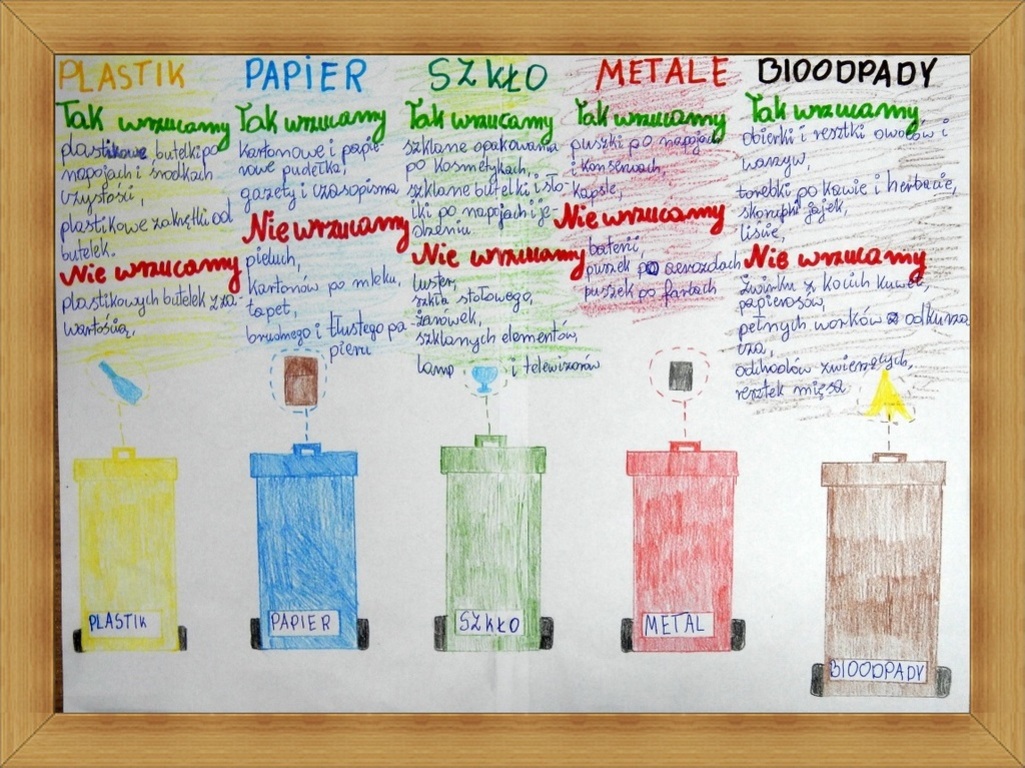 PLASTIK
Tak wrzucamy
plastikowe butelki po
napojach i środkach
czystości,
plastikowe zakrętki od
butelek.
Nie wrzucamy
plastikowych butelek z za-
wartością,
PAPIER
Tak wrzucamy
Kartonowe i papie-
rowe pudełka,
gazety i czasopisma
Nie wrzucamy
pieluch,
Kartonów po mleku,
tapet,
brudnego i tłustego pa
pieru
SZKŁO
Tak wrzucamy
szklane opakowania
po kosmetykach,
szklane butelki i sło-
iki po napojach i je-
dzeniu
Nie wrzucamy
luster,
szkła stołowego,
żarówek,
szklanych elementów,
lamp i telewizorów
METALE
Tak wrzucamy
puszki po napojach
i konserwach,
Kapsle,
Nie wrzucamy
baterii,
puszek po aerozolach
puszek po farbach
BIOODPADY
Tak wrzucamy
obierki i resztki owoców i
warzyw,
torebki po kawie i herbacie,
skorupki jajek,
liście,
Nie wrzucamy
żwirku z kocich kuwet,
papierosów,
pełnych worków z odkurza
cza,
odchodów zwierzęcych,
resztek mięsa
PLASTIK
PAPIER
SZKŁO
METAL
BIOODPADY